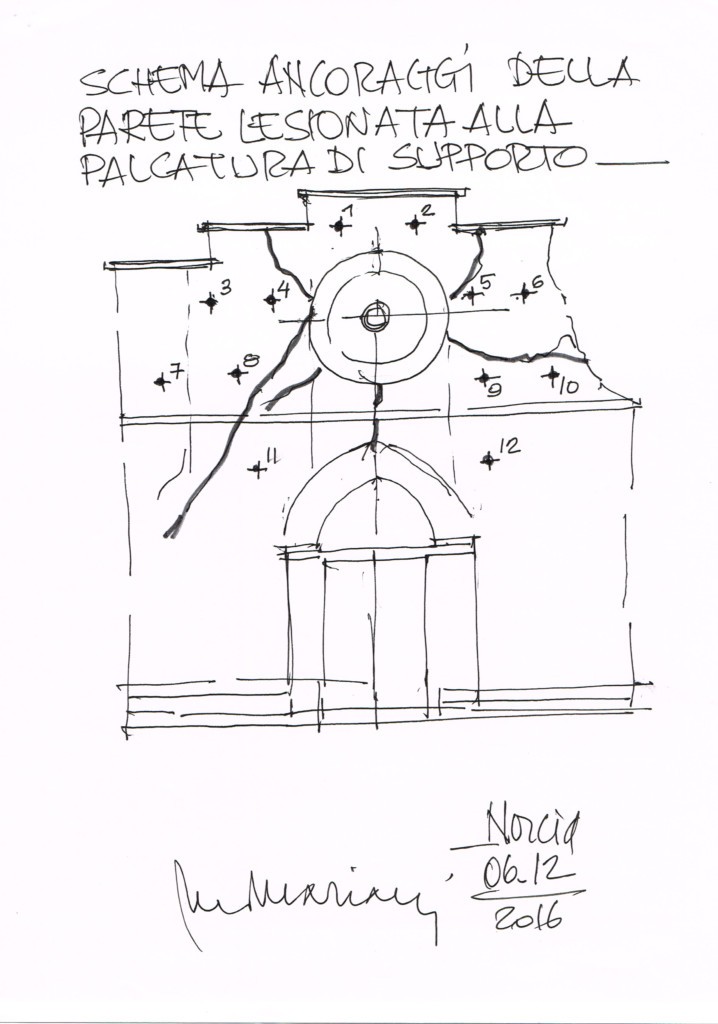 SCHEMA ANCORAGGI DELLA
PARETE LESIONATA ALLA
PALCATURA DI SUPPORTO
1 2
3 4 5 6
7 8 9 10
11 12
Norcia
06.12
2016